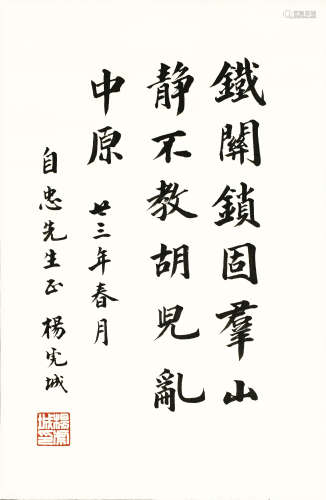 鐵關鎖固羣山
静不教胡兒亂
中原
廿三年春月
自忠先生正 楊虎城